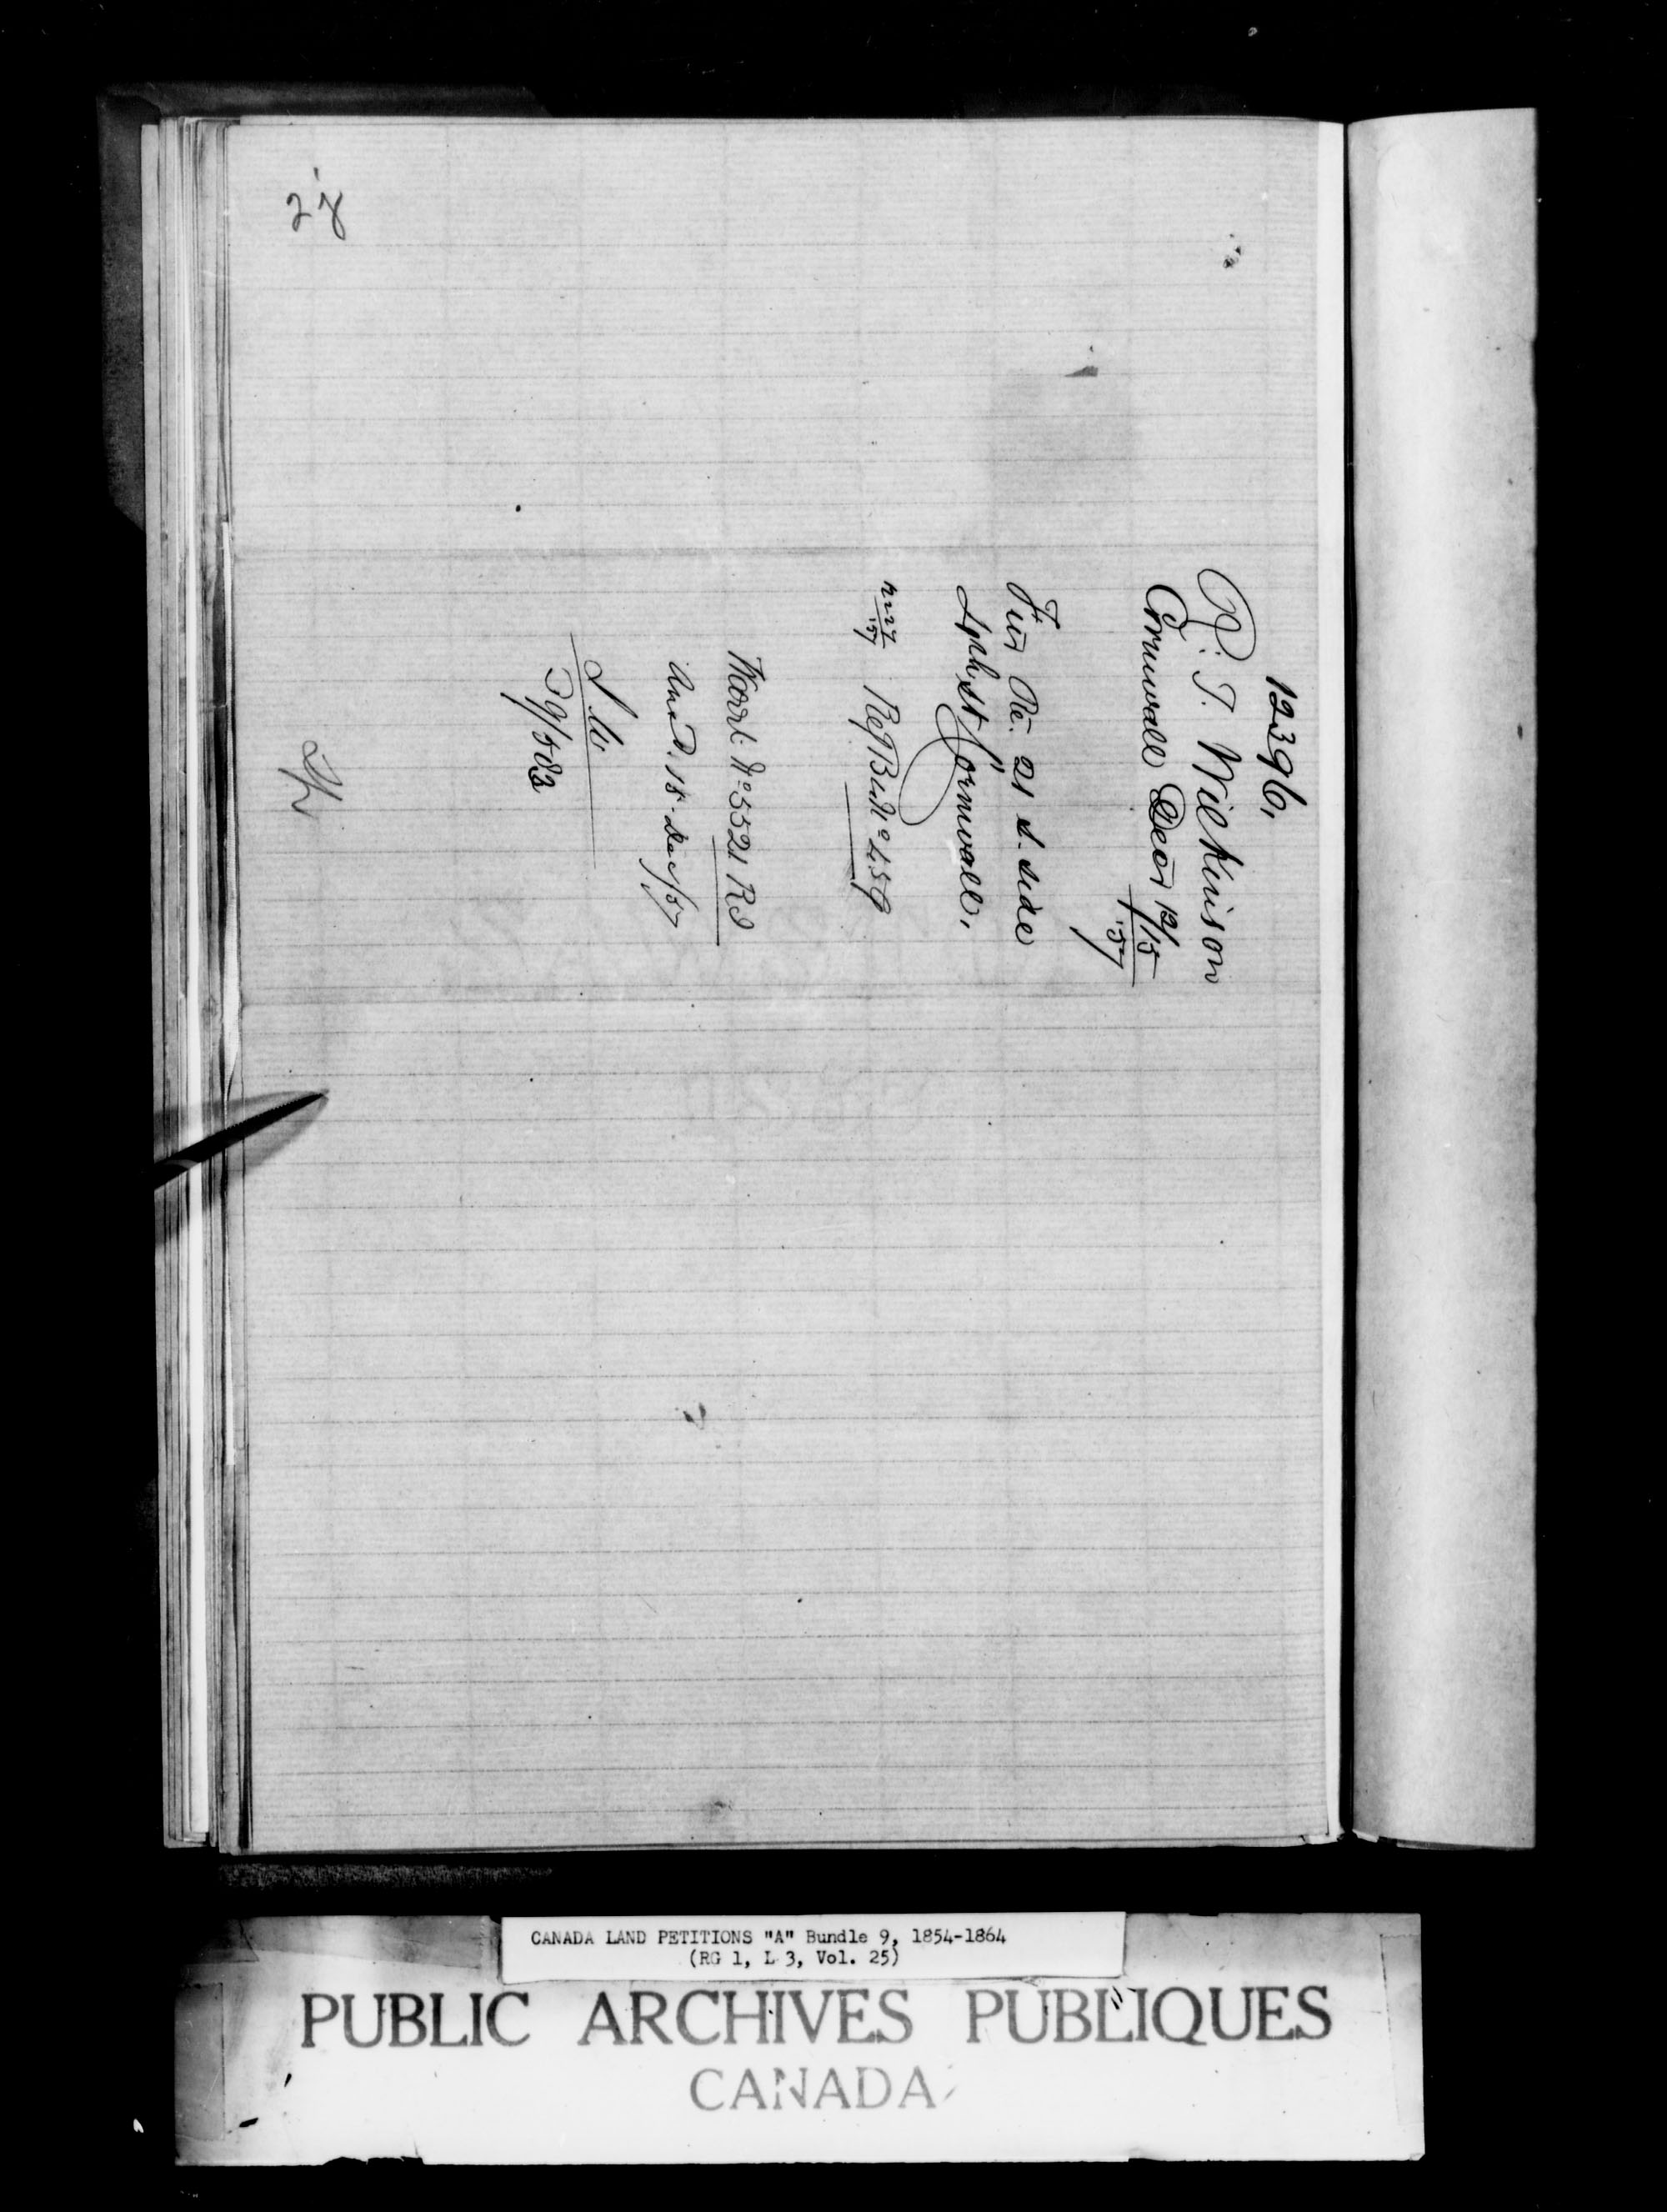 27
12396,
R. T. Wilkinson
Cornwall Decr 12/15
'57
For Pt. 21 S. Side
St Cornwall,
'57 Reg B. No 459
Warrt No 5521 RS
Ansd. 18 Dec/57
39/503
CANADA LAND PETITIONS "A" Bundle 9, 1854-1864
(RG 1, L 3, Vol. 25)
PUBLIC ARCHIVES PUBLIQUES
CANADA